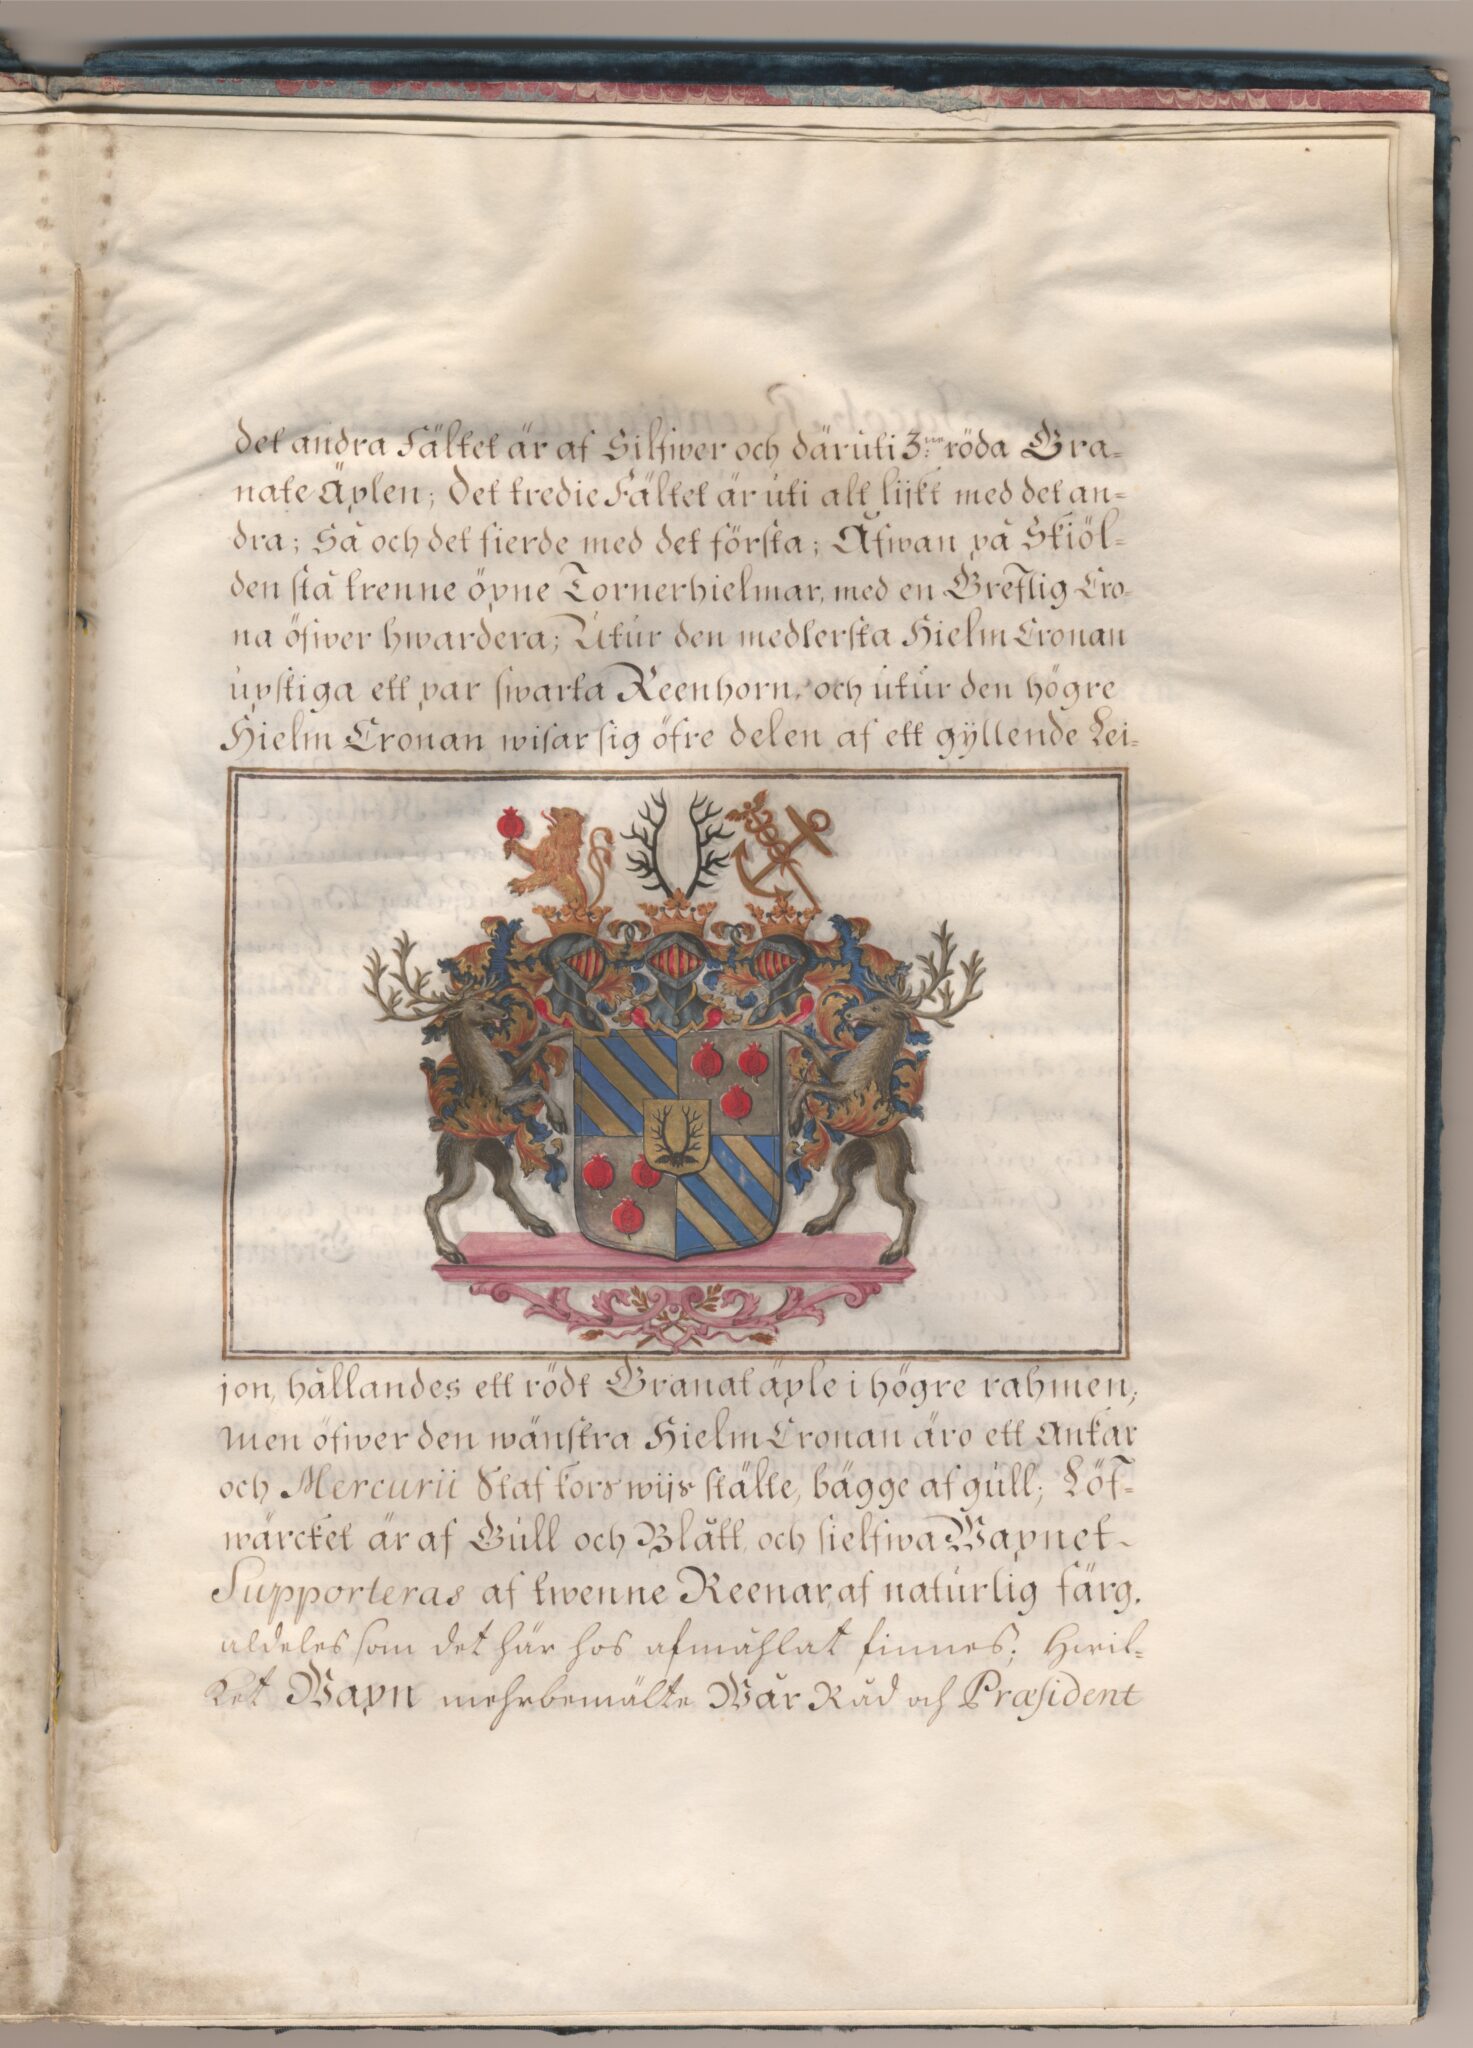 det andra Fältet är af Silfwer och däruti 3:ne röda Gra-
nate Äplen; Det tredie Fältet är uti alt lijkt med det an-
dra; Så och det fierde med det första; Åfwan på Skiöl-
den stå trenne öpne Tornerhielmar, med en Greflig Cro-
na öfwer hwardera; Utur den medlersta Hielm Cronan
upstiga ett par swarta Reenhorn, och utur den högre
Hielm Cronan wisar sig öfre delen af ett gyllende Lei-
jon, hållandes ett rödt Granat äple i högre rahmen;
Men öfwer den wänstra Hielm Cronan äro ett Ankar
och Mercurii Staf korswijs stälte, bägge af gull; Löf-
wärcket är af Gull och Blått, och sielfwa Wapnet
Supporteras af twenne Reenar, af naturlig färg.
aldeles som det här hos afmåhlat finnes; Hwil-
ket Wapn mehrbemälte Wår Råd och Præsident